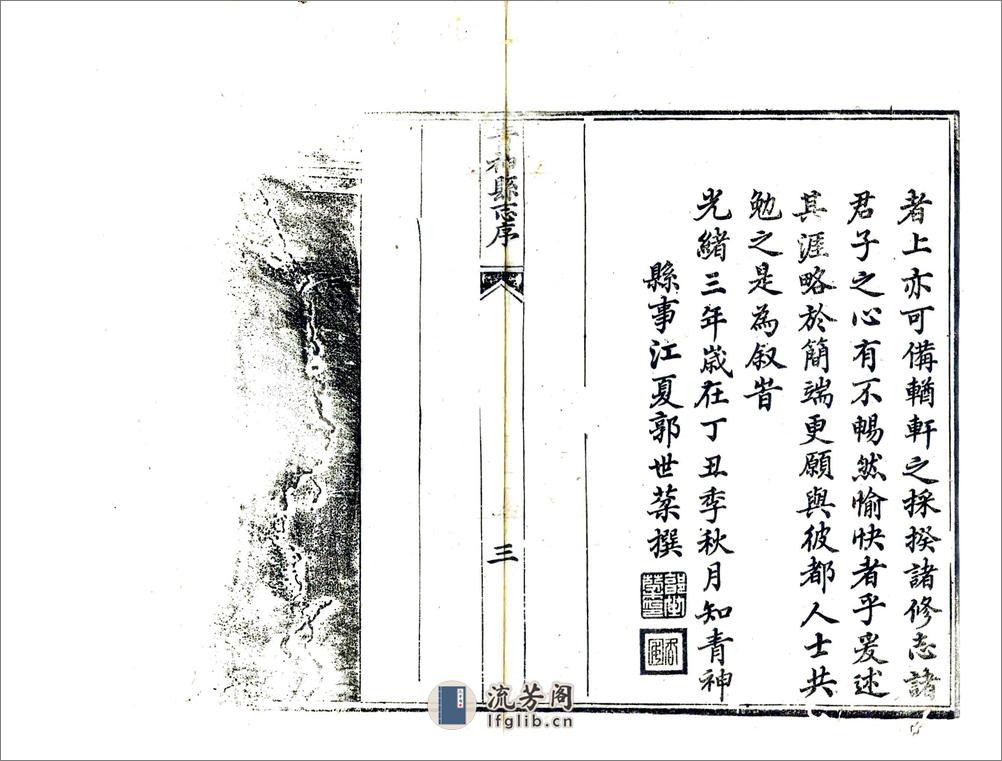 者上亦可備輶軒之採揆諸修志諸
君子之心有不暢然愉快者乎爰述
其涯略於簡端更願與彼都人士共
勉之是為叙旹
光緒三年歲在丁丑季秋月知青神
縣事江夏郭世棻撰
神縣志序
三
流芳阁
lfglib.cn